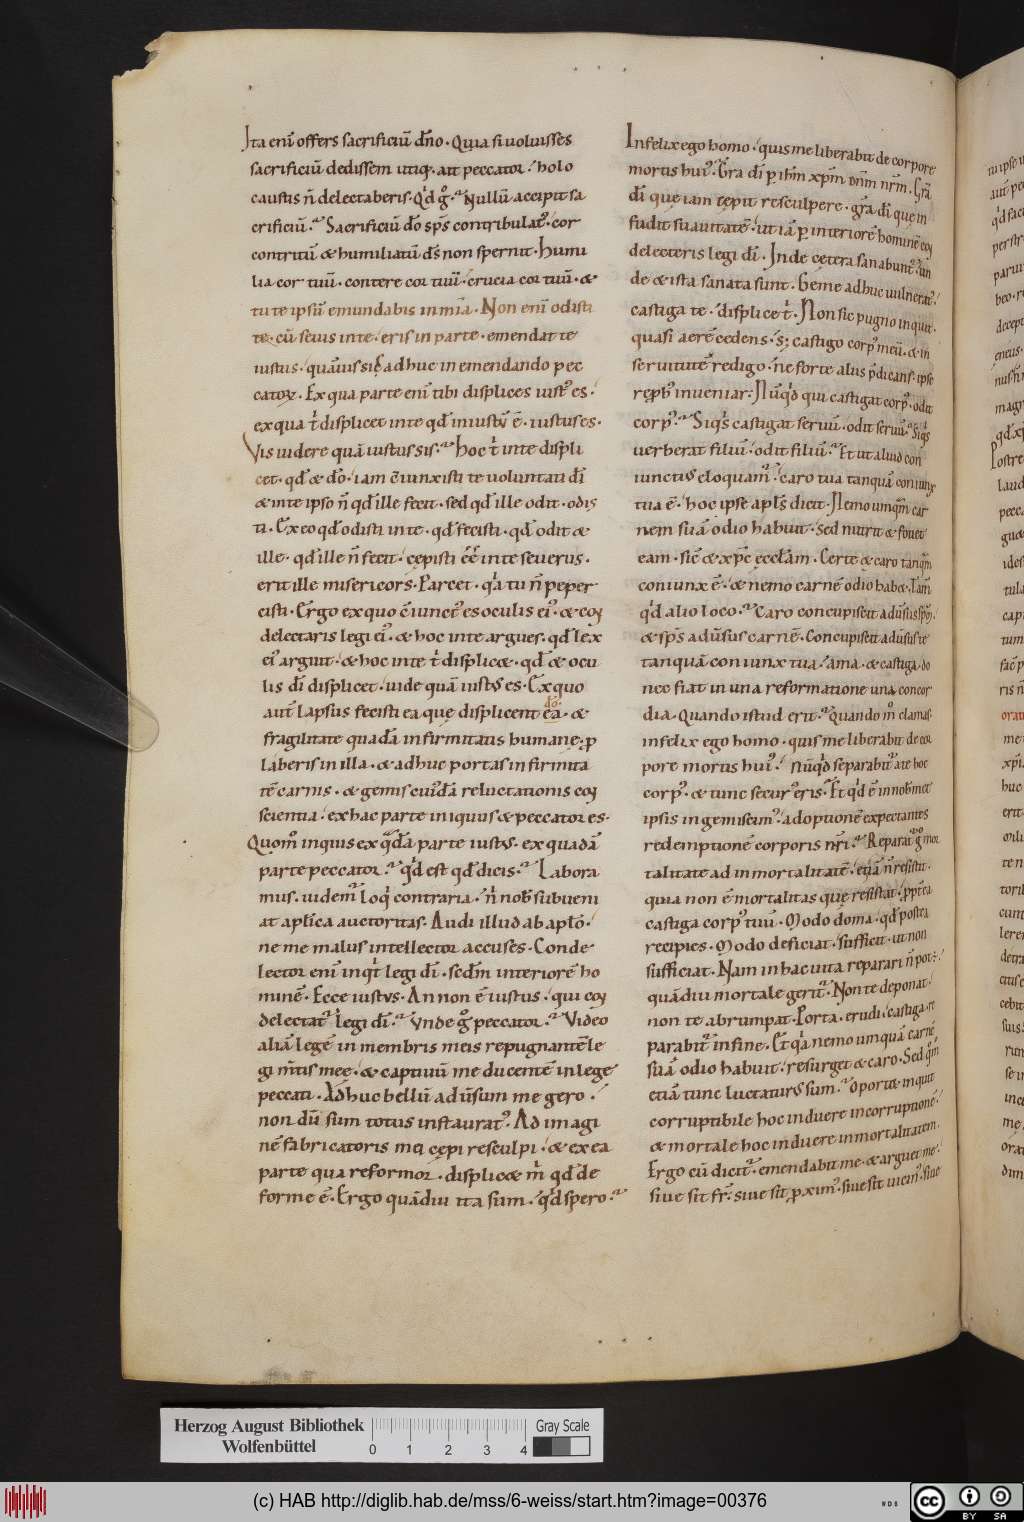 Ita eni͞ offers sacrificiū dn͞o. Quia si uoluisses
sacrificiū dedissem utiq;. ait peccator. holo
caustis n̄ delectaberis. Qd̓ gͦ. Nullū accipit sa
crificiū. Sacrificiū do͞ sps͞ contribulat᾽. cor
contritū & humiliatū ds͞ non spernit. Humi
lia cor tuū. contere cor tuū. crucia cor tuū. &
tu te ipsū emundabis in mīa. Non eni͞ odisti
te. cū seuis in te. eris in parte. emendat te
iustus. quāuis sis adhuc in emendando pec
catoꝝ. Ex qua parte eni͞ tibi displices iust᾽ es.
ex qua t̓ displicet in te qd̄ iniustū ē. iustus es.
Vis uidere quā iustus sis. Hoc t̓ in te displi
cet. qd̄ & do͞. iam c̄iunxisti te uoluntati di͞
& in te ipso n̄ qd̄ ille fecit. sed qd̄ ille odit. odis
ti. Ex eo qd̄ odisti in te. qd̄ fecisti. qd̄ odit &
ille. qd̄ ille n̄ fecit. cępisti ēē in te seuerus.
erit ille misericors. Parcet. qa̓ tu n̄ peper
cisti. Ergo ex quo c̄iunct᾽ es oculis ei᾽. & co
delectaris legi ei᾽. & hoc in te argues. qd̄ lex
ei᾽ arguit. & hoc in te t̓ displic&. qd̄ & ocu
lis di͞ displicet. uide quā iustus es. Ex quo
do͞
aut͞ lapsus fecisti ea quę displicent ea. &
fragilitate quadā infirmitatis humanę. p
laberis in illa. & adhuc portas infirmita
tē carnis. & gemis cuiđā reluctationis co
scientia. ex hac parte iniquus & peccator es.
Quom͞ inquis ex qdā parte iustus. ex quadā
parte peccator. qd̓ est qd̄ dicis. Labora
mus. uidem᾽ loqi̓ contraria. n̓ nob̄ subueni
at apl͞ica auctoritas. Audi illud ab apl͞o.
ne me malus intellector accuses. Conde
lector eni͞ inqt̓ legi di͞. scdm͞ interiorē ho
minē. Ecce iustus. An non ē iustus. qui co
delectat᾽ legi di͞. Vnde gͦ peccator. Video
aliā legē in membris meis repugnantē le
gi m̄tis męę. & captiuū me ducentē in lege
peccati. Adhuc bellū aduīsum me gero.
non dū sum totus instaurat᾽. Ad imagi
nē fabricatoris mei cępi resculpi. & ex ea
parte qua reformor. displic& m̓ qd̄ de
forme ē. Ergo quādiu ita sum. qd̓ spero.
Infelix ego homo. quis me liberabit de corpore
mortis hui᾽. Gra͞ di͞ p ihm͞ xpm͞ dnm͞ nrm͞. Gra͞
di͞ quę iam cępit resculpere. gra͞ di͞ quę in
fudit suauitatē. ut iā p interiorē hominē co
delecteris legi di͞. Inde cętera sanabunt᾽. un
de & ista sanata sunt. Geme adhuc uulnerat᾽.
castiga te. displice t̓. Non sic pugno inquit.
quasi aerē cedens. s; castigo corp᾽ meū. & in
seruitutē redigo. ne forte aliis p̄dicans. ipse
repb᾽ inueniar. Nūqd̓ qui castigat corp᾽. odit
corp᾽. Siqs̓ castigat seruū. odit seruū. Siqs̓
uerberat filiū. odit filiū. Et ut aliud con
iunctius eloquam᾽. caro tua tanquā coniunx
tua ē. hoc ipse apls͞ dicit. Nemo umqm͞ car
nem suā odio habuit. sed nutrit & fouet
eam. sic̄ & xpc͞ ęccl͞am. Certe & caro tanqm͞
coniunx ē. & nemo carnē odio hab&. Tam͞
qd̓ alio loco. Caro concupiscit aduīsus spm͞.
& sps͞ aduīsus carnē. Concupiscit aduīsus te
tanquā coniunx tua. ama. & castiga. do
nec fiat in una reformatione una concor
dia. Quando istud erit. Quando m͞ clamas.
infelix ego homo. quis me liberabit de cor
pore mortis hui᾽. Nūqd̓ separabit᾽ a te hoc
corp᾽. & tunc secur᾽ eris. Et qd̓ ē in nobīmet
ipsis ingemiscim᾽. adoptionē expectantes
redemptionē corporis nr͞i. Reparat᾽ gͦ mor
talitate ad inmortalitatē. etiā n̄ resistit.
quia non ē mortalitas quę resistat. pp̄t̄ea
castiga corp᾽ tuū. Modo doma. qd̄ postea
recipies. Modo deficiat. sufficit. ut non
sufficiat. Nam in hac uita reparari n̄ pot.
quādiu mortale gerit᾽. Non te deponat.
non te abrumpat. Porta. erudi. castiga. re
parabit᾽ in fine. Et qa̓ nemo umquā carnē
suā odio habuit. resurget & caro. Sed qm͞
etiā tunc luctaturus sum. Oport& inquit
corruptibile hoc induere incorruptionē.
& mortale hoc induere inmortalitatem.
Ergo cū dicit᾽. emendabit me. & arguet me.
siue sit fr͞. siue sit pxim᾽. siue sit uicin᾽. siue
Herzog August Bibliothek
Wolfenbüttel
0 1 2 3 4
Gray Scale
(c) HAB http://diglib.hab.de/mss/6-weiss/start.htm?image=00376
WD6
cc BY SA